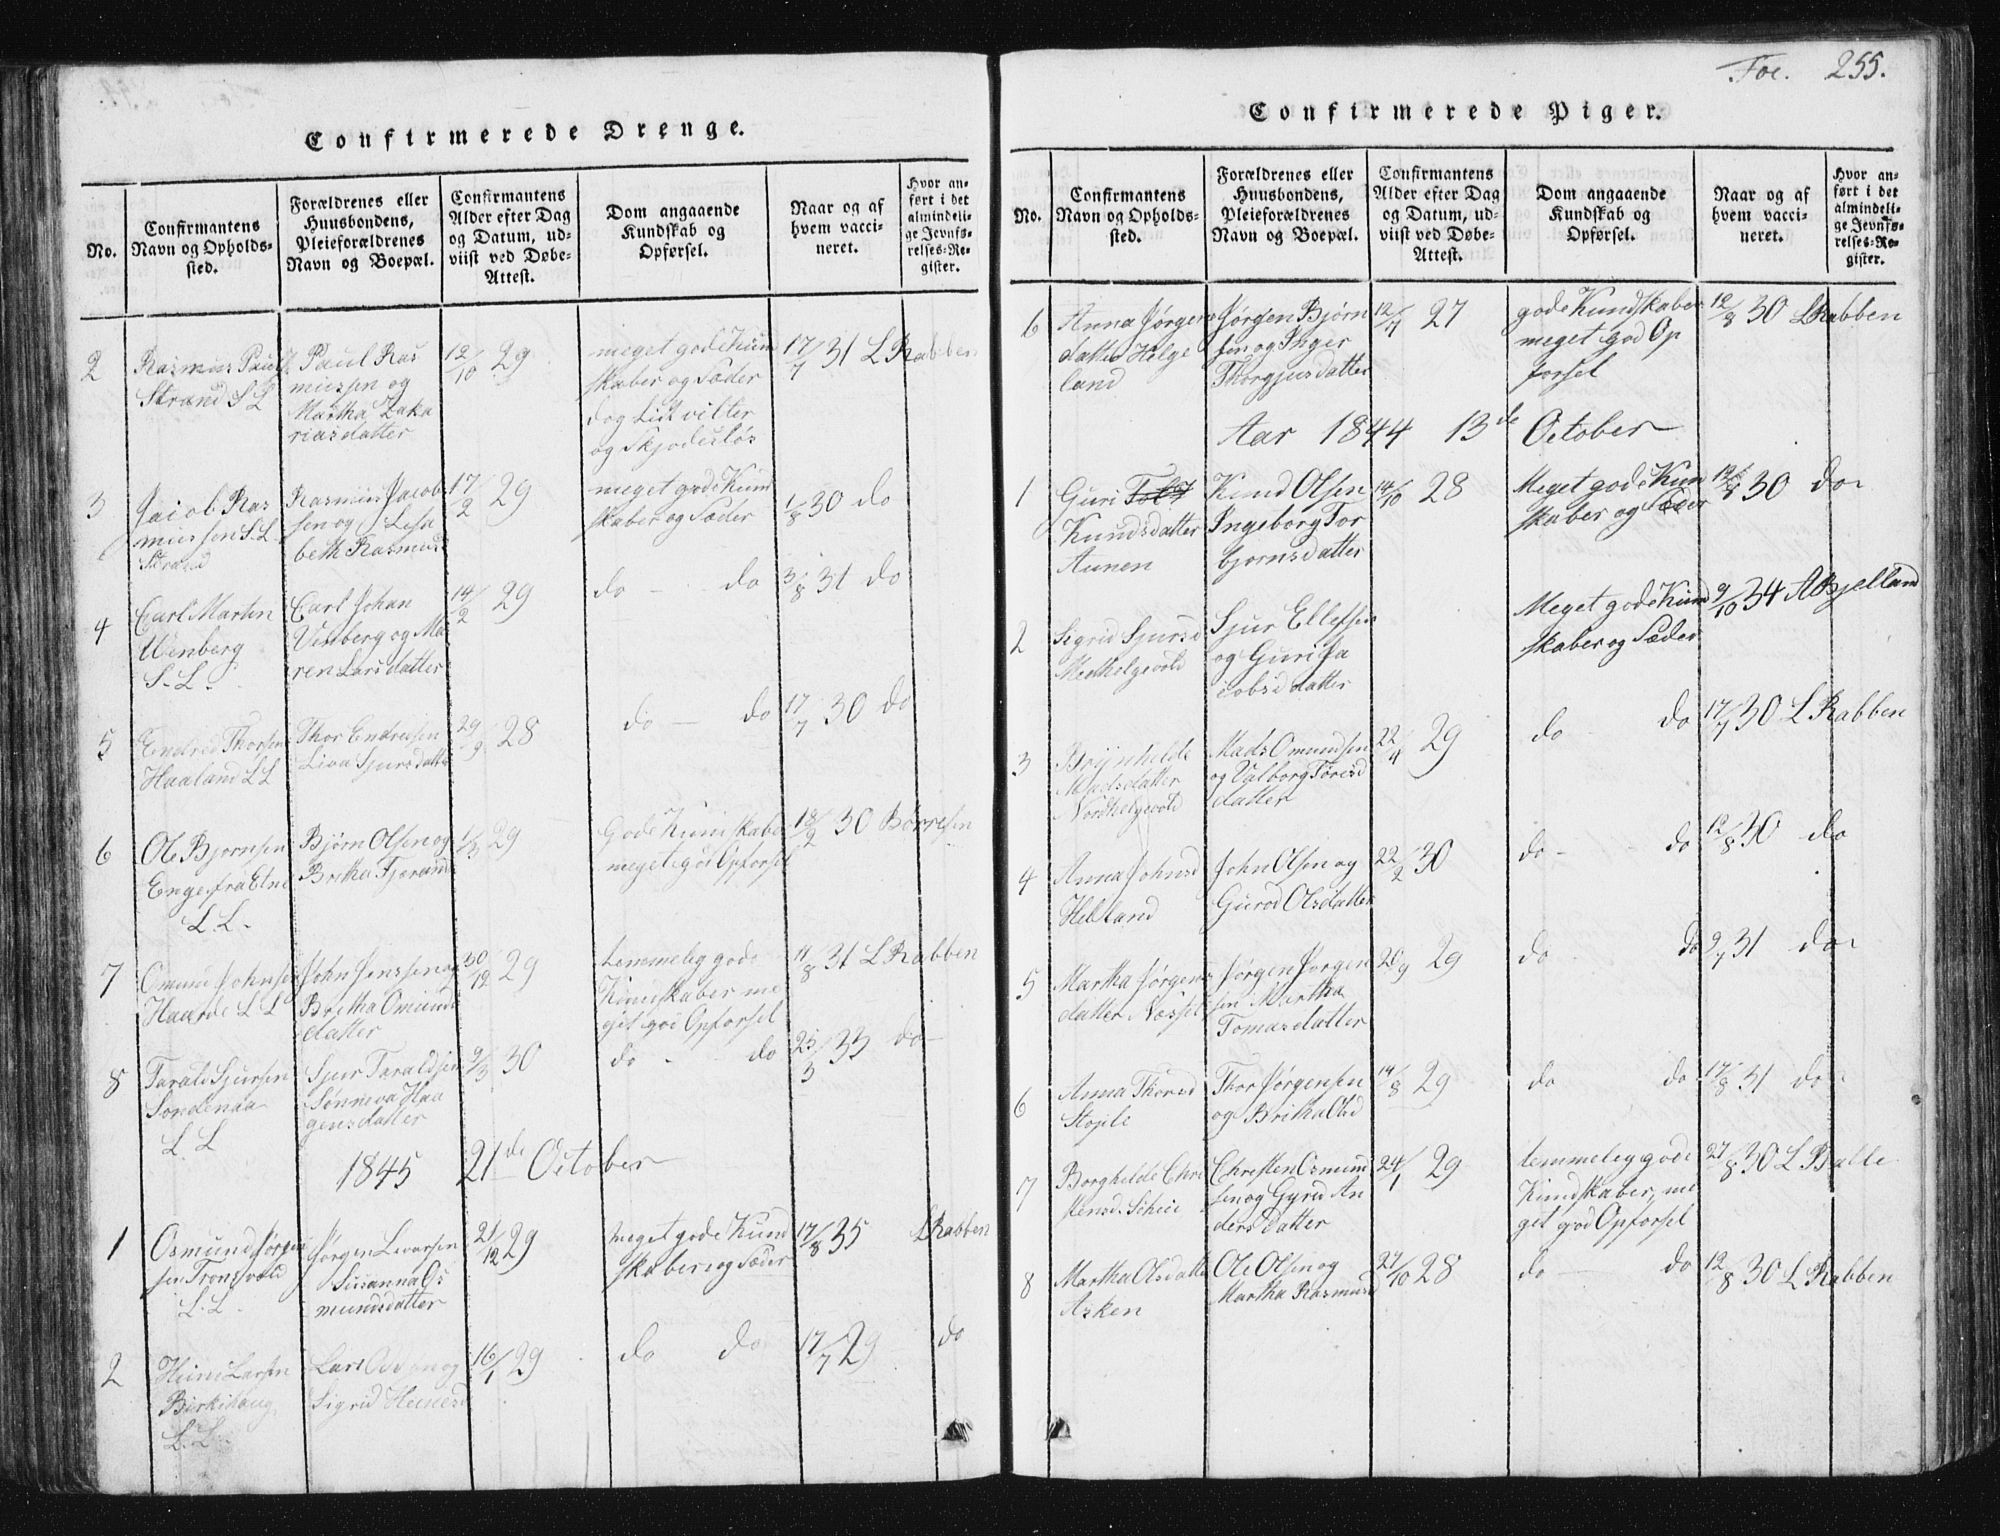 Confirmerede Drenge.
No.
Confirmantens
Navn og Opholds-
sted.
Forældrenes eller
Huusbondens,
Pleieforældrenes
Navn og Boepæl.
Confirmantens
Alder efter Dag
og Datum, ud-
viist ved Døbe-
Attest.
Dom angaaende
Kundskab og
Opførsel.
Naar og af
hvem vacci-
neret.
Hvor an-
ført i det
almindeli-
ge Jevnfø-
relses-Re-
gister.
2
Rasmus Pauls
Strand S L
Paul Ras
mussen og
Martha Zaka
riasdatter
12/10 29
meget gode Kun
skaber og Sæder
dog lidt vilter
og Skjødesløs
17/7 31 L Rabben
3
Jacob Ras
mussen S.L.
Strand
Rasmus Jacob
sen og Lesa
beth Rasmusd
17/2 29
meget gode Kund
skaber og Sæder
1/8 30 do
4
Carl Martin
Wenberg
S. L.
Carl Johan
Venberg og Ma
ren Larsdatter
14/2 29
do - do
3/8 31 do
5
Endred Thorsen
Haaland L L
Thor Endresen
Liva Sjursdatter
29/9 28
do - do
17/7 30 do
6
Ole Bjørnsen
Enge fra Etne
L. L.
Bjørn Olsen og
Britha Fjorand
1/3 29
Gode Kundskabe
meget god Opførsel
18/2 30 Børresen
7
Omund Johnsen
Haarde L L
John Jenssen og
Britha Omunds
datter
30/12 29
temmelig gode
Kundskaber me
get god Opførsel
11/8 31 L Rabben
8
Tarald Sjursen
Søndenaa
L L
Sjur Taraldsen
Sønneva Haa
gensdatter
9/3 30
do - do
25/3 33 do
1845 21de October
1
Osmund Jørgen
sen Tronsvold
L. L.
Jørgen Levarsen
Susanna Os
mundsdatter
21/12 29
meget gode Kund
skaber og Sæder
17/8 35 L Rabben
2
Heine Larsen
Birkihaug
L. L.
Lars Odsen og
Sigrid Heinesd
16/1 29
do do
17/7 29 do
Foe. 255.
Confirmerede Piger.
No.
Confirmantens
Navn og Opholds-
sted.
Forældrenes eller
Huusbondens,
Pleieforældrenes
Navn og Boepæl.
Confirmantens
Alder efter Dag
og Datum, ud-
viist ved Døbe-
Attest.
Dom angaaende
Kundskab og
Opførsel.
Naar og af
hvem vacci-
neret.
Hvor an-
ført i det
almindeli-
ge Jevnfø-
relses-Re-
gister.
6
Anna Jørgens
datter Helge
land
Jørgen Bjørn
sen og Inger
Thorgjursdatter
12/7 27
gode Kundskaber
meget god Op
førsel
12/8 30 L Rabben
Aar 1844 13de October
1
Guri
Knudsdatter
Aunen
Knud Olsen
Ingeborg Tor
bjørnsdatter
14/10 28
Meget gode Kun
skaber og Sæder
30 do
2
Segrid Sjursd
Medhelgevold
Sjur Ellefsen
og Guri Ja
cobsdatter
Meget gode Kund
skaber og Sæder
9/10 34 A Bjelland
3
Brynhilde
Madsdatter
Nordhelgevold
Mads Omundsen
og Valborg Toresd
datter
22/4 29
do do
17/7 30 L Rabben
4
Anna Johnsd
Helland
John Olsen og
Gurod Olsdatter
22/2 30
do - do
12/8 30 do
5
Martha Jørgens
datter Nossel
Jørgen Jorgen
sen Martha
Tomasdatter
20/9 29
do do
9/7 31 do
6
Anna Thorsd
Stople
Thor Jørgensen
og Britha Olsd
14/8 29
do do
17/8 31 do
7
Borghilde Chri
stensd. Schiei
Christen Osmund
sen og Gyrid An
dersdatter
24/1 29
temmelig gode
Kundskaber, me
get god Opførsel
27/8 30 L Balle
8
Martha Olsdatter
Asken
Ole Olsen og
Martha Rasmusd
27/10 28
do - do
12/8 30 L Rabben